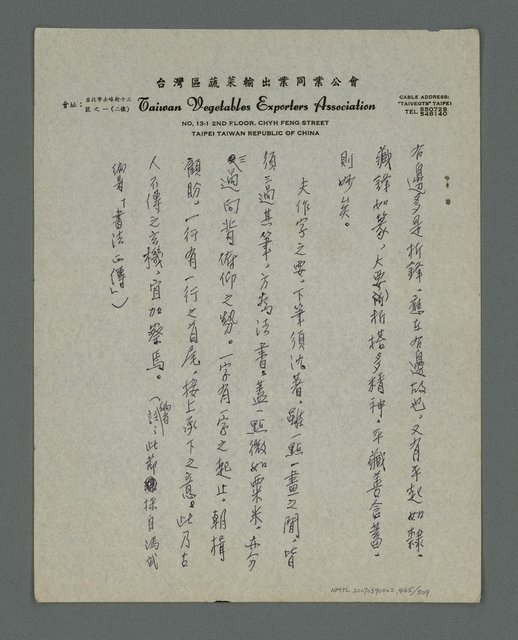 台灣區蔬菜輸出業同業公會
會址：台北市赤峰街十三號之一(二樓)
Taiwan Vegetables Exporters Association
NO. 13-1 2ND FLOOR, CHYH FENG STREET
TAIPEI TAIWAN REPUBLIC OF CHINA
CABLE ADDRESS:
"TAIVEGTS" TAIPEI
TEL 550729
548140
右邊多是折鋒，應在右邊故也。又有平起如隸，
藏鋒如篆，大要折搭多精神，平藏善含蓄，
則妙矣。
夫作字之要，下筆須沈著，雖一點一畫之間，皆
須三過其筆，方為法書。蓋一點微如粟米，亦分
三過向背俯仰之勢。一字有一字之起止，朝揖
顧盼。一行有一行之首尾，接上承下之意。此乃古
人不傳之玄機，宜加察焉。（編者註：此節採自馮武
編著「書法正傳」）
NMTL 20070590002, 465/509